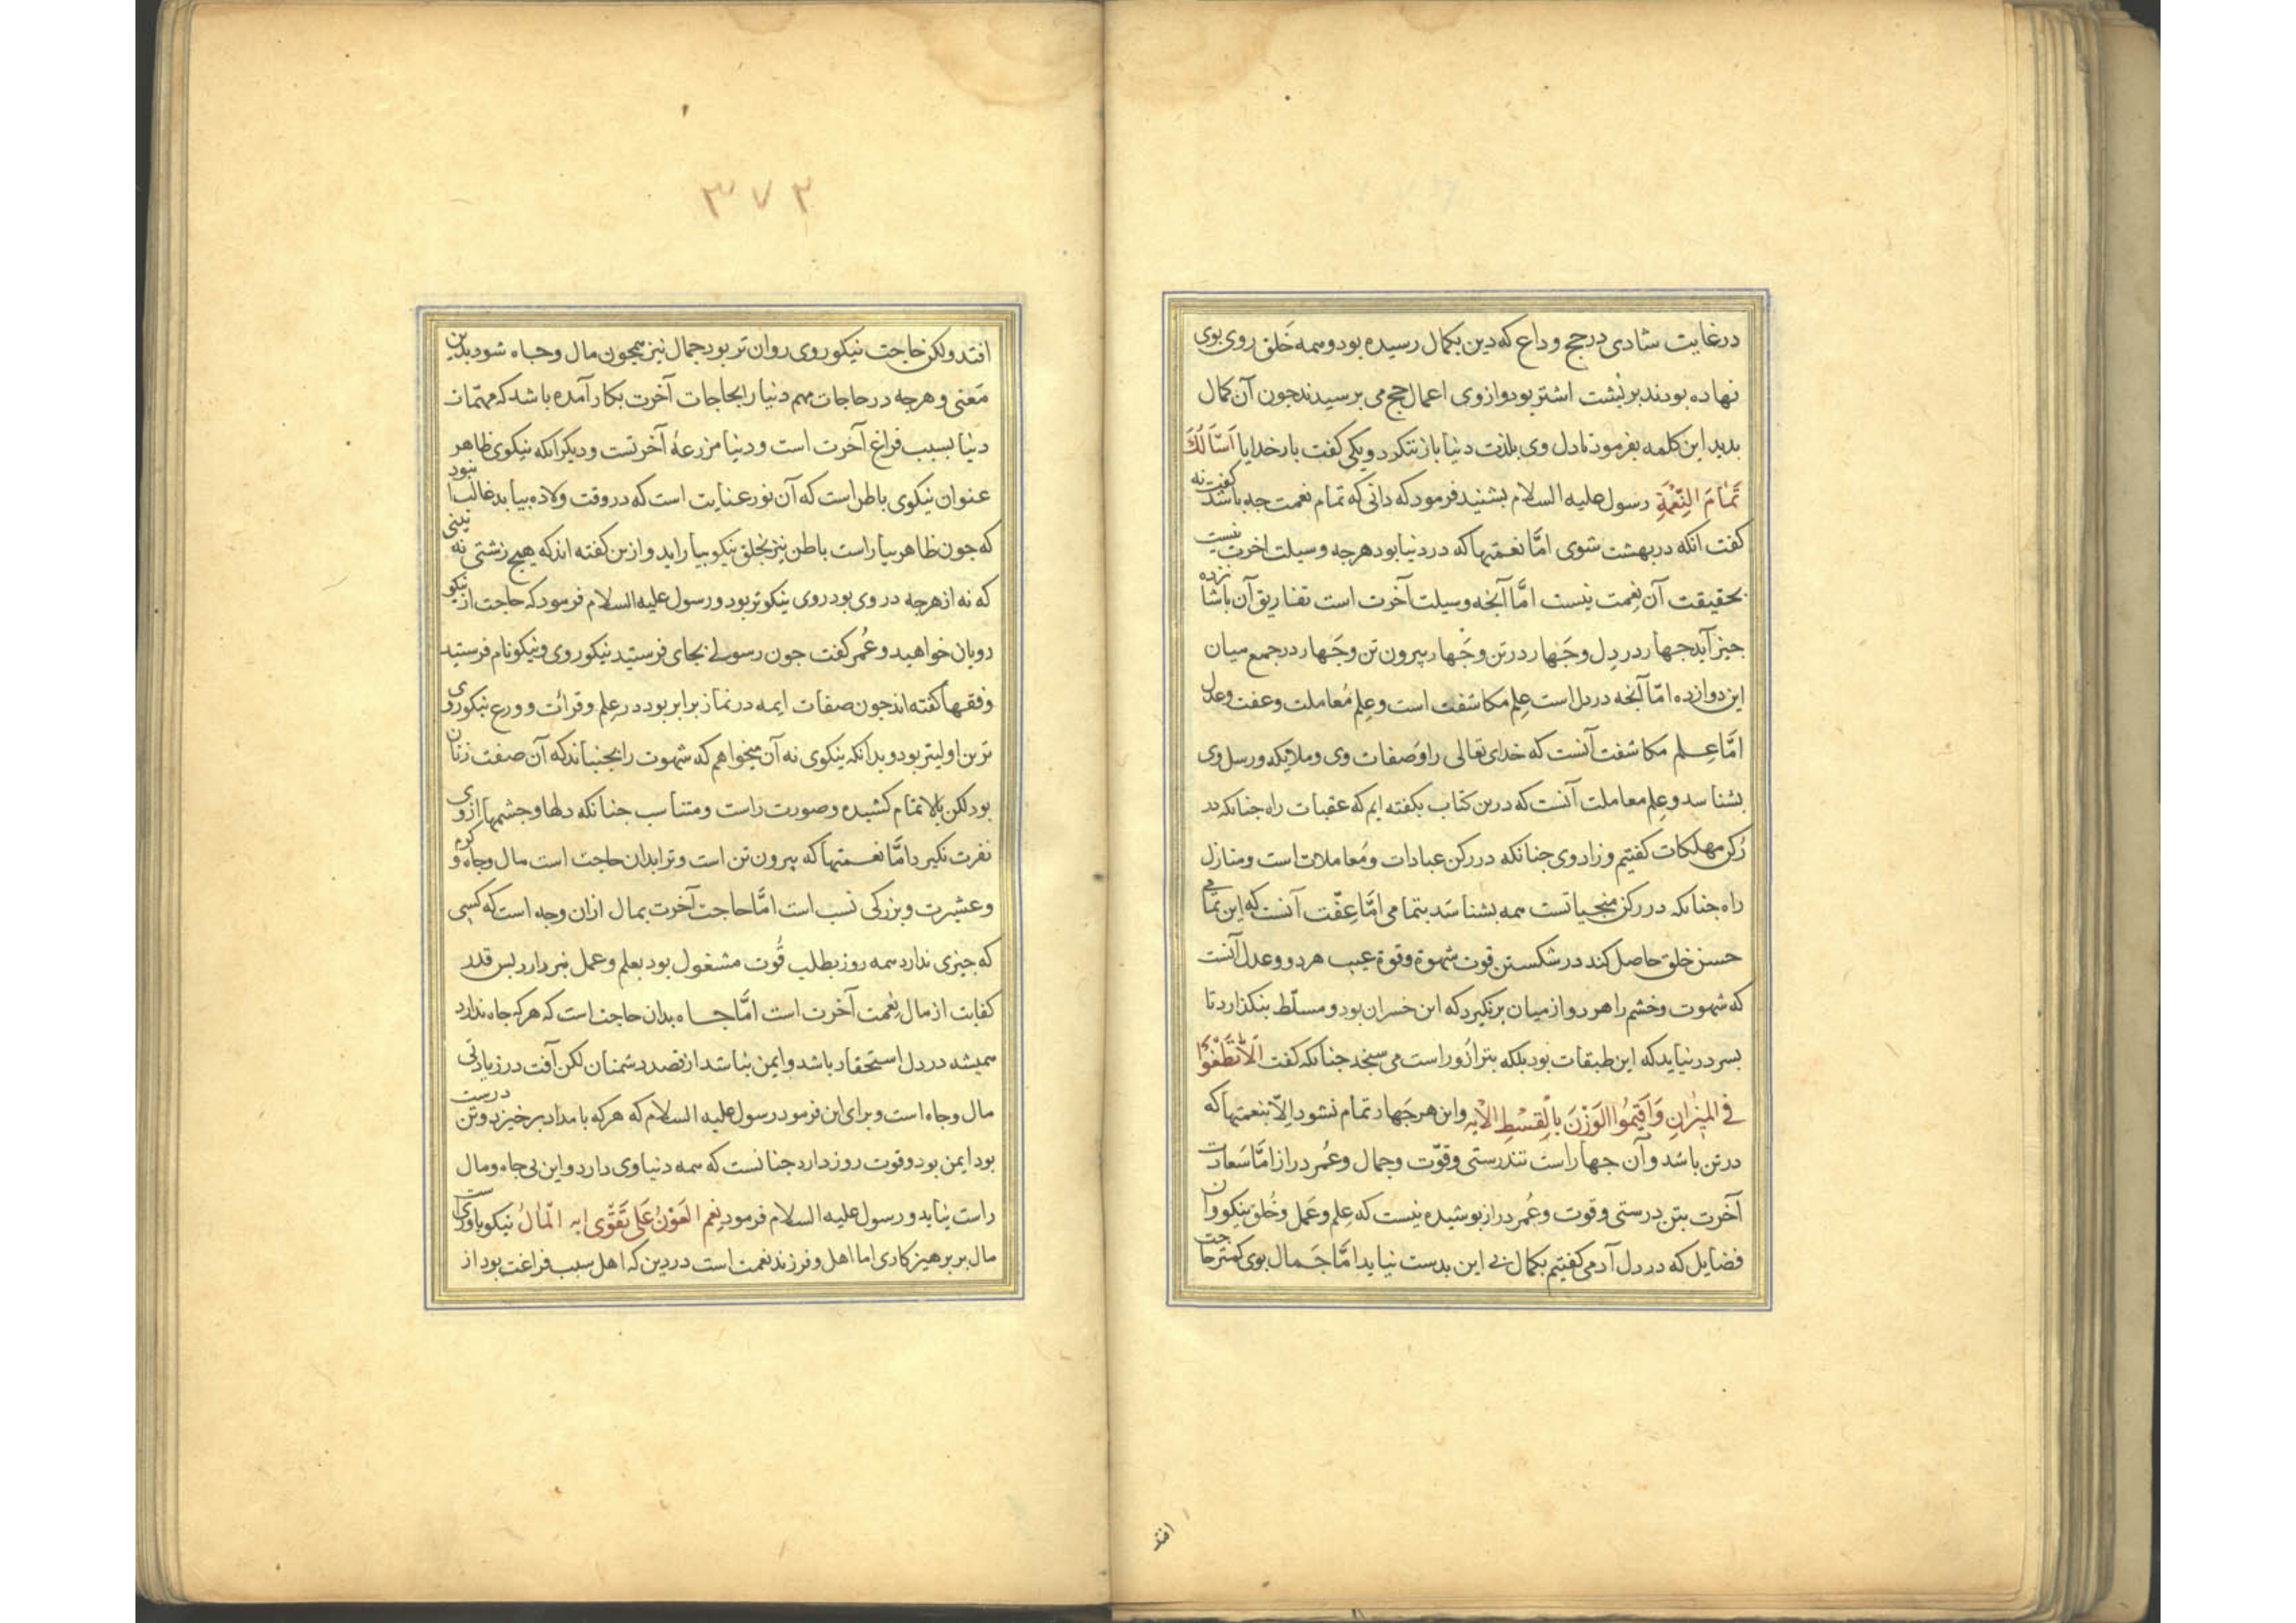 در غایت شادی در حج وداع که دین بکمال رسیده بود و همه خَلق روی بوی
نهاده بودند بر بُشت اشتر بود و از وی اعمال حج می برسیدند جون آن کمال
بدید این کلمه بفرمود تا دل وی بلذت دنیا باز ننکرد و یکی کفت بار خدایا اَسْاَلُكَ
تَمَامَ النِّعْمَةِ رسول علیه السلام بشنید فرمود که دانی که تمام نعمت جه باشد کفت نه
کفت انکه در بهشت شوی امَّا نعمتها که در دنیا بود هرجه وسیلت اخرت نیست
بحقیقت آن نِعمت نیست امَّا آنجه وسیلت آخرت است تفاریق آن با شانزده
جیز آید جهار در دِل و جَهار در تن و جَهار بیرون تن و جَهار در جمع میان
این دوازده امّا آنجه در دل است عِلم مکاشفت است و عِلم مُعاملت و عفت و عدل
امَّا عِلم مکاشفت آنست که خدای تعالی را و صفات وی و ملایکه و رسل وی
بشناسد و عِلم معاملت آنست که درین کتاب بکفته ایم که عقبات راه جنانکه در
رُکن مهلکات کفتیم و زاد وی جنانکه در رکن عبادات و مُعاملات است و منازل
راه جنانکه در رکن منجیاتست همه بشناسَد بتمامی امَّا عِفّت آنست که این تمامی
حسن خلق حاصل کند در شکستن قوت شهوة و قوة غیب هر دو و عدل آنست
که شهوت و خشم را هر دو از میان برنکیرد که این خسران بود و مسلّط بنکذارد تا
بسر در نیاید که این طبقات بود بلکه بترازُو راست می سنجد جنانکه کفت اَلَّا تَطْغَوْا
فِي الْمِيزَانِ وَأَقِيمُوا الْوَزْنَ بِالْقِسْطِ الْآيه و این هر جَهار تمام نشود الاّ بنعمتها که
در تن باشد و آن جهار است تندرستی و قوّت و جمال و عُمر دراز امَّا سَعادت
آخرت بتن درستی و قوت و عُمر دراز بوشیده نیست که عِلم و عَمل و خُلق نیکو و ان
فضایل که در دل آدمی کفتیم بکمال بی این بدست نیاید امَّا جَمال بوی کمتر حاجت
افتد
۳۷۲
افتد ولکن حاجت نیکو روی روان تر بود جمال نیز همجون مال و جاه شود بدین
مَعنی و هرجه در حاجات مهم دنیا را بحاجات آخرت بکار آمده باشد که مهمّات
دنیا بسبب فراغ آخرت است و دنیا مزرعهٔ آخرتست و دیکر انکه نیکوی ظاهر
عنوان نیکوی باطن است که آن نور عنایت است که در وقت ولاده بیاید غالب آن بود
که جون ظاهر بیاراست باطن نیز بخلق نیکو بیاراید و ازین کفته اند که هیج زشتی نه بینی
که نه از هرجه در وی بود روی نیکوتر بود و رسول علیه السلام فرمود که حاجت از نیکو
رویان خواهید و عُمر کفت جون رسولی بجای فرستید نیکو روی و نیکو نام فرستید
و فقها کفته اند جون صفات ایمه در نماز برابر بود در عِلم و قرائت و ورع نیکو روی
ترین اولیتر بود و بدانکه نیکوی نه آن میخواهم که شهوت را بجنباند که آن صفت زنان
بود لکن بالا تمام کشیده و صورت راست و متناسب جنانکه دلها و جشمها از وی
نفرت نکیرد امَّا نعمتها که بیرون تن است و ترا بدان حاجت است مال و جاه و کوم
و عشیرت و بزرکی نسب است امَّا حاجت آخرت بمال ازان وجه است که کسی
که جیزی ندارد همه روز بطلب قُوت مشغول بود بعلم و عمل نبردازد بس قدر
کفایت از مال نِعمت آخرت است امَّا جاه بدان حاجت است که هرکه جاه ندارد
همیشه در دل استحقار باشد و ایمن نباشد از قصد دشمنان لکن آفت در زیادتی
مال و جاه است و برای این فرمود رسول علیه السلام که هرکه بامداد برخیزد و تن درست
بود ایمن بود و قوت روز دارد جنانست که همه دنیا وی دارد و این بی جاه و مال
راست نیاید و رسول علیه السلام فرمود نِعم العَوْنُ عَلَى تَقْوَى ایه الْمَالُ نیکو یاوری است
مال بر برهیزکاری اما اهل و فرزند نعمت است در دین که اهل سبب فراغت بود از